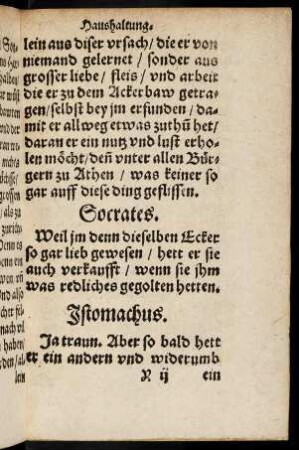 Haushaltung.
lein aus diser vrsach/ die er von
niemand gelernet / sonder aus
grosser liebe/ fleis/ vnd arbeit
die er zu dem Ackerbaw getra-
gen/selbst bey jm erfunden/ da-
mit er allweg etwas zuthů het/
daran er ein nutz vnd lust erho-
len mőcht/ deñ vnter allen Bür-
gern zu Athen / was keiner so
gar auff diese ding geflissen.
Socrates.
Weil jm denn dieselben Ecker
so gar lieb gewesen / hett er sie
auch verkaufft / wenn sie jhm
was redliches gegolten hetten.
Istomachus.
Ja traun. Aber so bald hett
er ein andern vnd widerumb
N ij ein